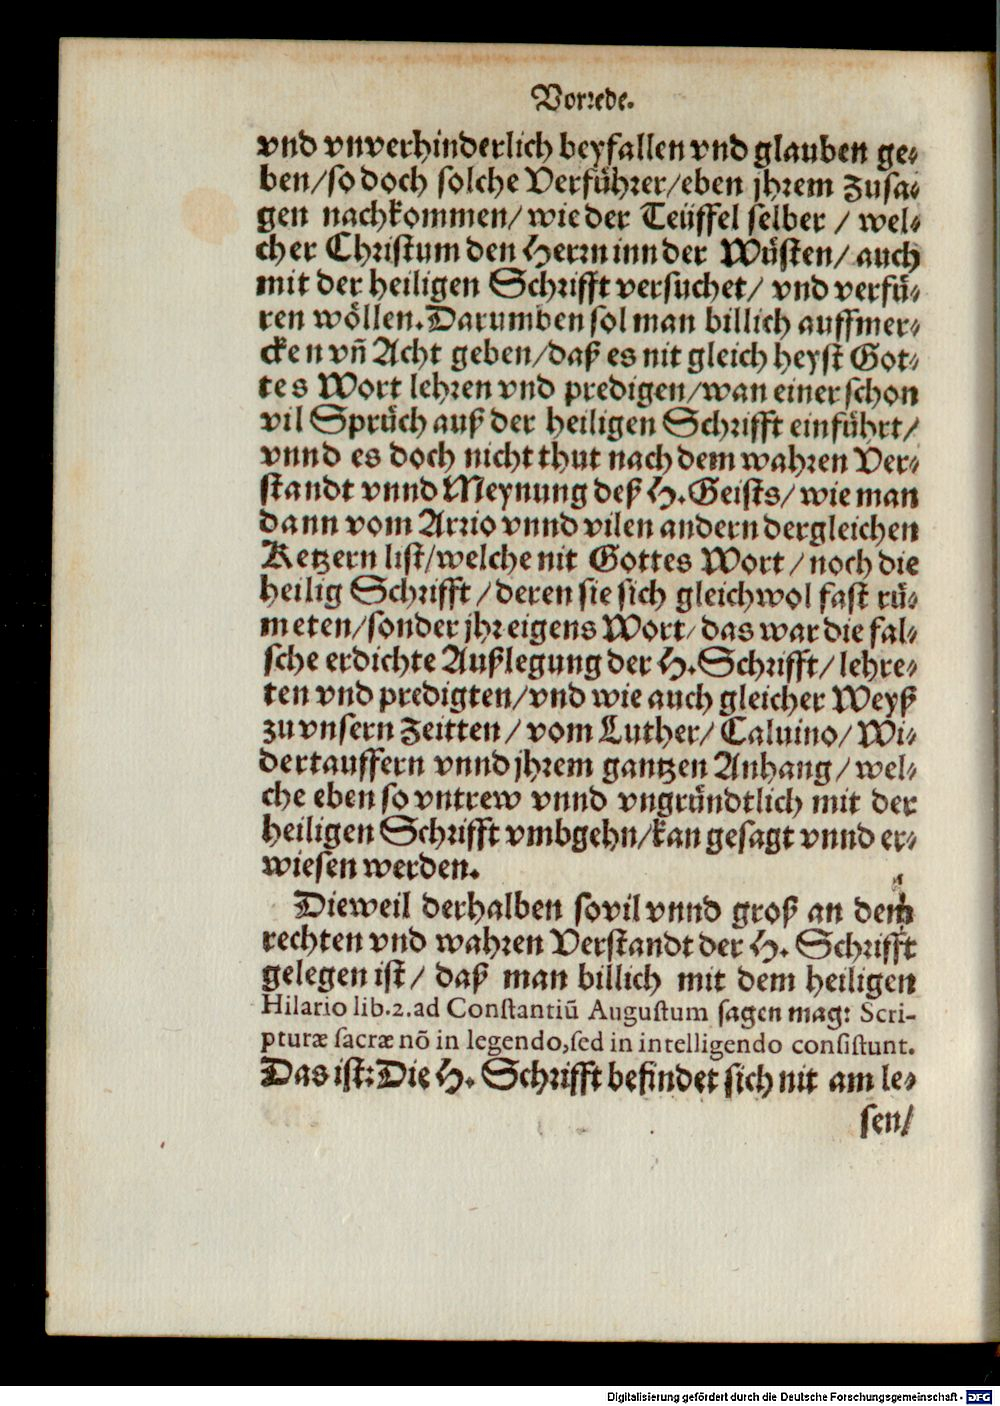 Vorrede.
vnd vnverhinderlich beyfallen vnd glauben ge-
ben/so doch solche Verführer/eben jhrem Zusa-
gen nachkommen/ wie der Teüffel selber / wel-
cher Christum den Herrn inn der Wüsten/ auch
mit der heiligen Schrifft versuchet/ vnd verfü-
ren wöllen. Darumben sol man billich auffmer-
cken vñ Acht geben/daß es nit gleich heyst Got-
tes Wort lehren vnd predigen/wan einer schon
vil Sprüch auß der heiligen Schrifft einführt/
vnnd es doch nicht thut nach dem wahren Ver-
standt vnnd Meynung deß H. Geists/ wie man
dann vom Arrio vnnd vilen andern dergleichen
Ketzern list/welche nit Gottes Wort / noch die
heilig Schrifft / deren sie sich gleichwol fast rü-
meten/sonder jhr eigens Wort/ das war die fal-
sche erdichte Außlegung der H. Schrifft/ lehre-
ten vnd predigten/vnd wie auch gleicher Weyß
zu vnsern Zeitten / vom Luther/ Caluino/ Wi-
dertauffern vnnd jhrem gantzen Anhang/ wel-
che eben so vntrew vnnd vngründtlich mit der
heiligen Schrifft vmbgehn/kan gesagt vnnd er-
wiesen werden.
Dieweil derhalben sovil vnnd groß an dem
rechten vnd wahren Verstandt der H. Schrifft
gelegen ist/ daß man billich mit dem heiligen
Hilario lib.2. ad Constantiũ Augustum sagen mag: Scri-
pturæ sacræ nõ in legendo, sed in intelligendo consistunt.
Das ist: Die H. Schrifft befindet sich nit am le-
sen/
Digitalisierung gefördert durch die Deutsche Forschungsgemeinschaft - DFG